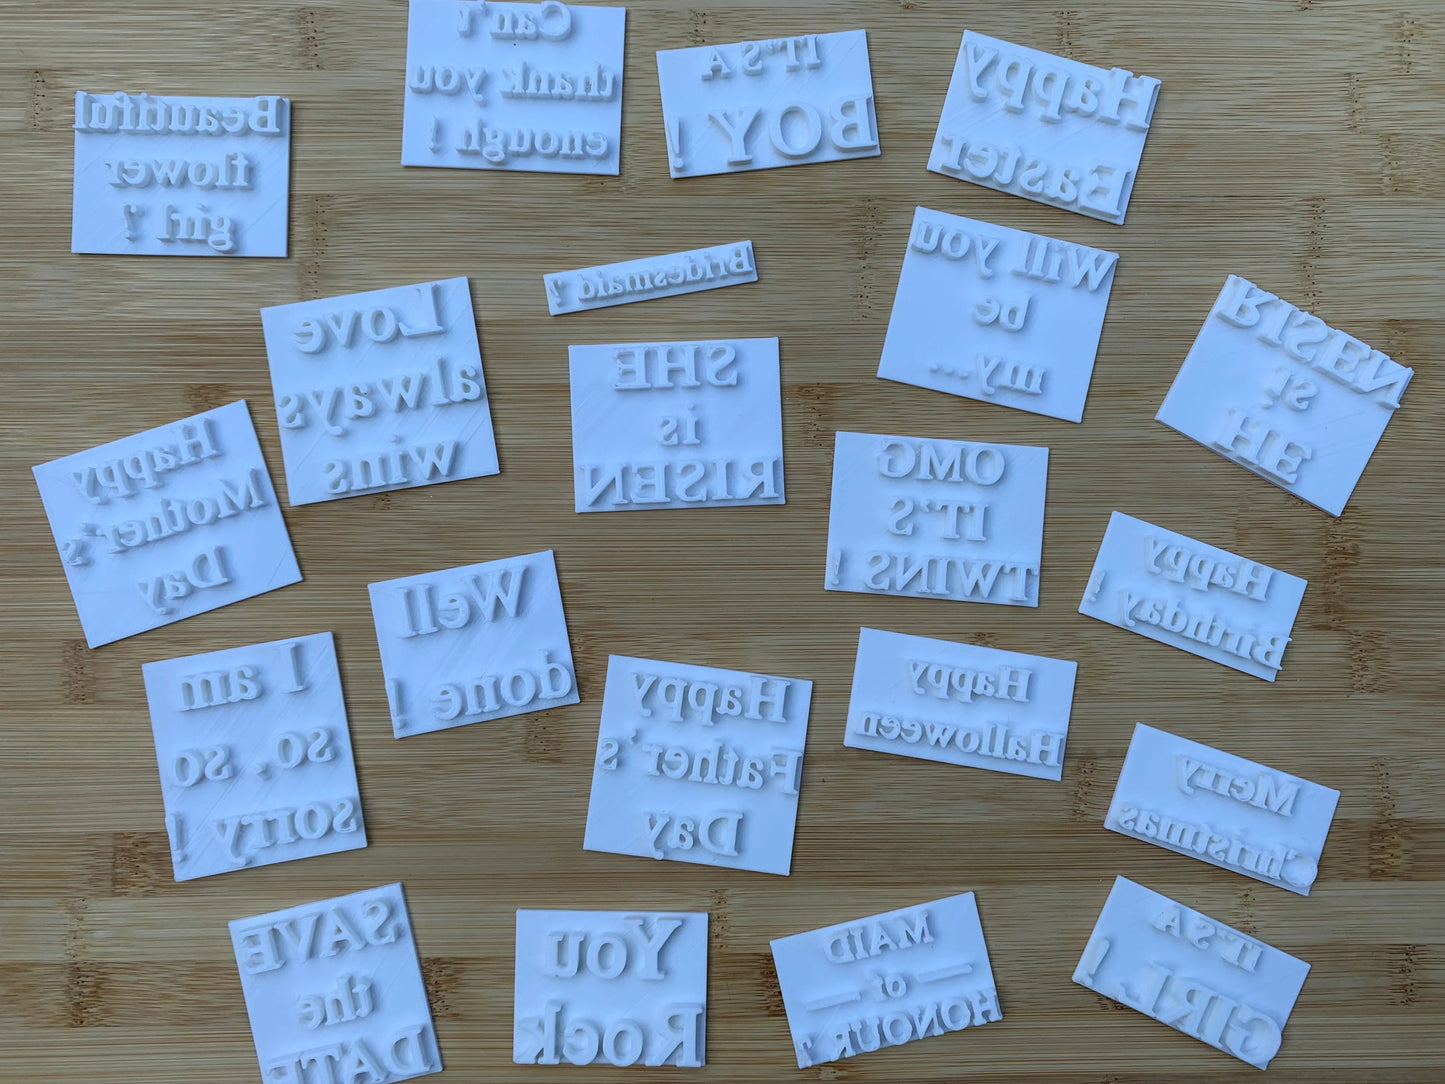 Can't
thank you
enough !
IT'S A
BOY !
Happy
Easter
Beautiful
flower
girl ?
Bridesmaid ?
Will you
be
my...
Love
always
wins
SHE
is
RISEN
HE
is
RISEN
Happy
Mother's
Day
OMG
IT'S
TWINS !
Well
done !
Happy
Birthday !
I am
so, so
sorry !
Happy
Father's
Day
Happy
Halloween
Merry
Christmas
SAVE
the
DATE
You
Rock
MAID
— of —
HONOUR ?
IT'S A
GIRL !